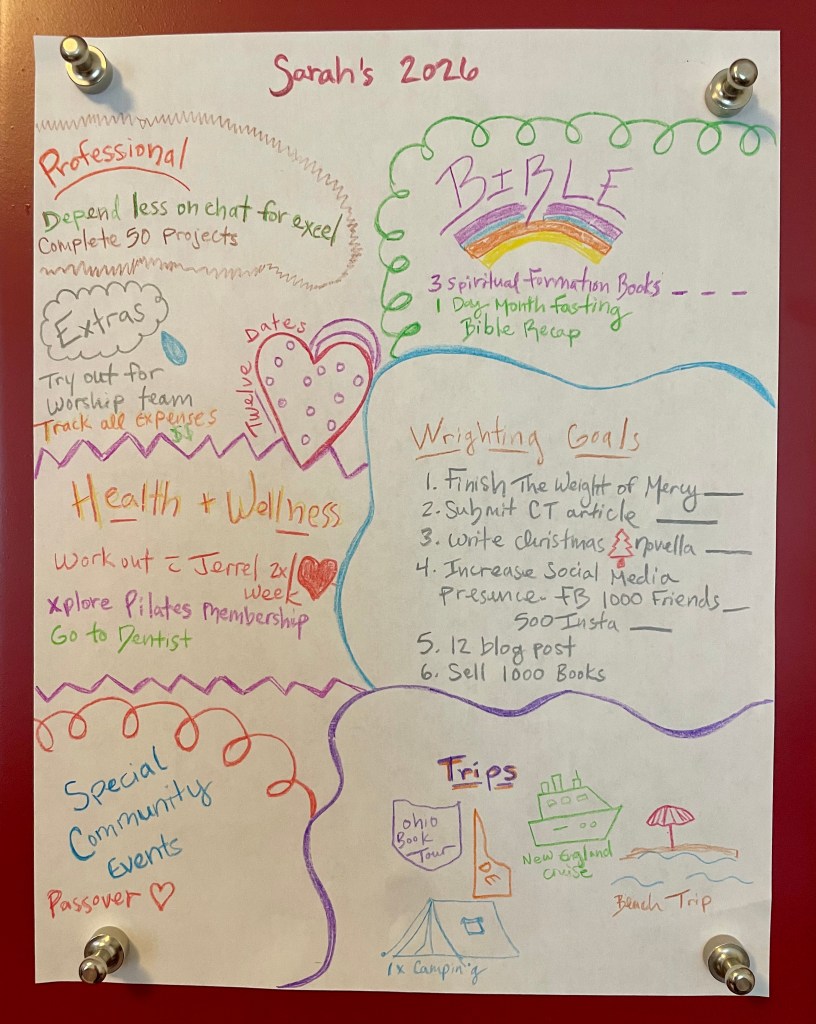 Sarah's 2026
Professional
Depend less on chat for excel
Complete 50 Projects
BIBLE
3 Spiritual Formation Books _ _ _
1 Day Month fasting
Bible Recap
Extras
Try out for
worship team
Track all expenses
$$
Twelve Dates
Health + Wellness
Work out c Jerrel 2x/
week
Xplore Pilates membership
Go to Dentist
Wrighting Goals
1. Finish The Weight of Mercy __
2. Submit CT article ___
3. write christmas novella ___
4. Increase Social Media
Presence- FB 1000 Friends _
500 Insta ___
5. 12 blog post
6. Sell 1000 Books
Special
Community
Events
Passover
Trips
Ohio
Book
Tour
DE
New England
Cruise
Beach Trip
1x Camping